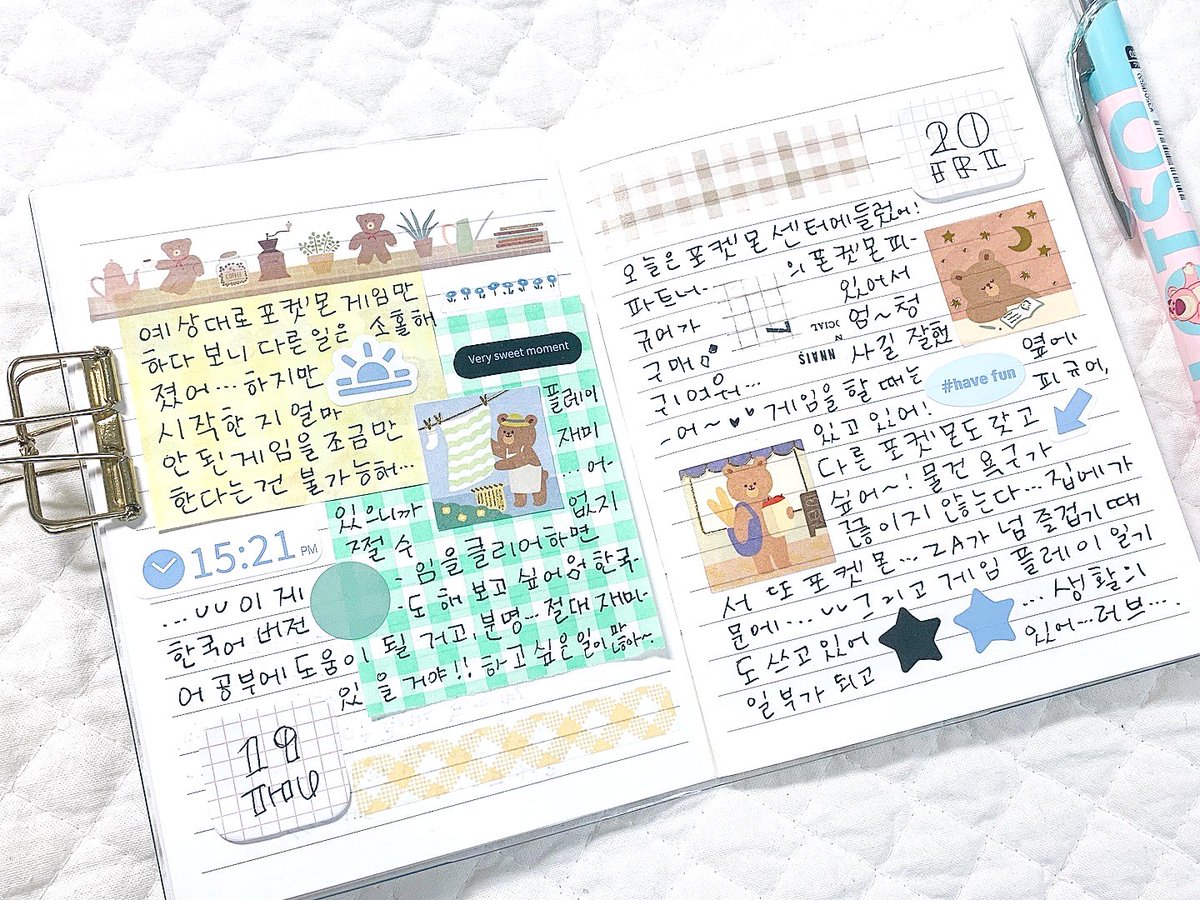 예상대로 포켓몬 게임만
하다 보니 다른 일은 소홀해
졌어... 하지만
시작한 지 얼마
안 된 게임을 조금만
한다는 건 불가능해...
Very sweet moment
플레이
재미
...어-
있으니까 없지
15:21 PM
절 수
임을 클리어 하면
...ㅜㅜ 이 게
도 해 보고 싶어 한국-
한국어 버전
될 거고, 분명... 절대 재미-
어 공부에 도움이
있을 거야!! 하고 싶은 일이 많아~
19
20
FRI
오늘은 포켓몬 센터에 들렀어!
파트너- 의 포켓몬 피-
규어가 있어서
구매 엄~청
귀여워... 사길 잘했
-어~ 게임을 할 때는 옆에
#have fun
있고 있어! 피규어,
다른 포켓몬도 갖고
싶어~! 물건 욕구가
끊이지 않는다... 집에 가
서 또 포켓몬... ZA가 넘 즐겁기 때
문에... 그리고 게임 플레이 일기
도 쓰고 있어 ... 생활의
일부가 되고 있어...러브...